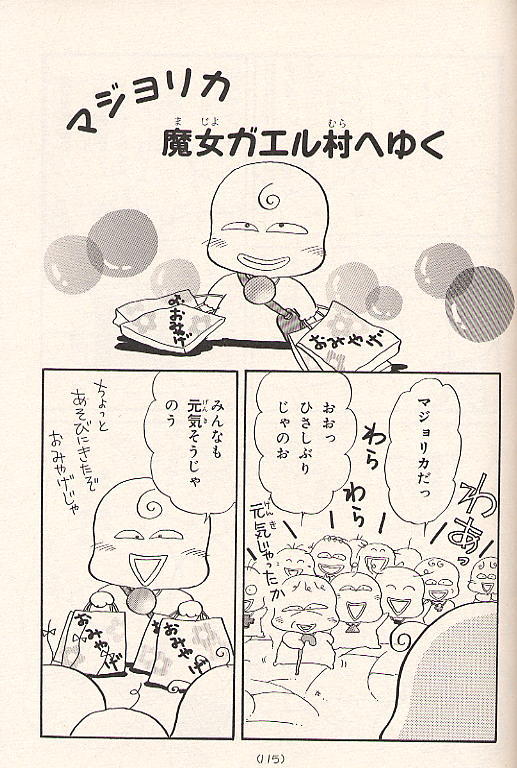 マジョリカ
魔女ガエル村へゆく
まじよ
むら
おみやげ
おみやげ
わあっ
マジョリカだっ
わら
わら
おおっ
ひさしぶり
じゃのお
元気じゃったか
げんき
みんなも
元気そうじゃ
げんき
のう
ちょっと
あそびにきたぞ
おみやげじゃ
おみやげ
おみやげ
(115)